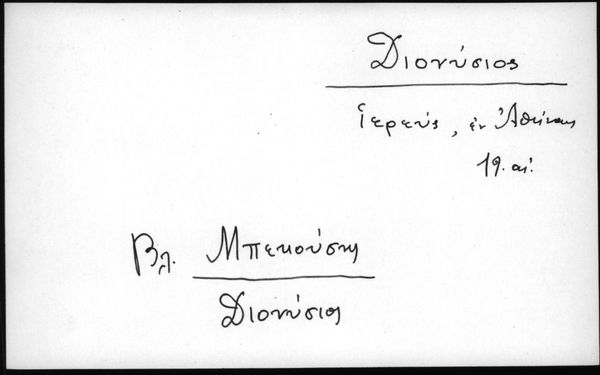 Διονύσιος
ἱερεύς, ἐν Ἀθήναις
19. αἰ.
Βλ. Μπεκούσης
Διονύσιος